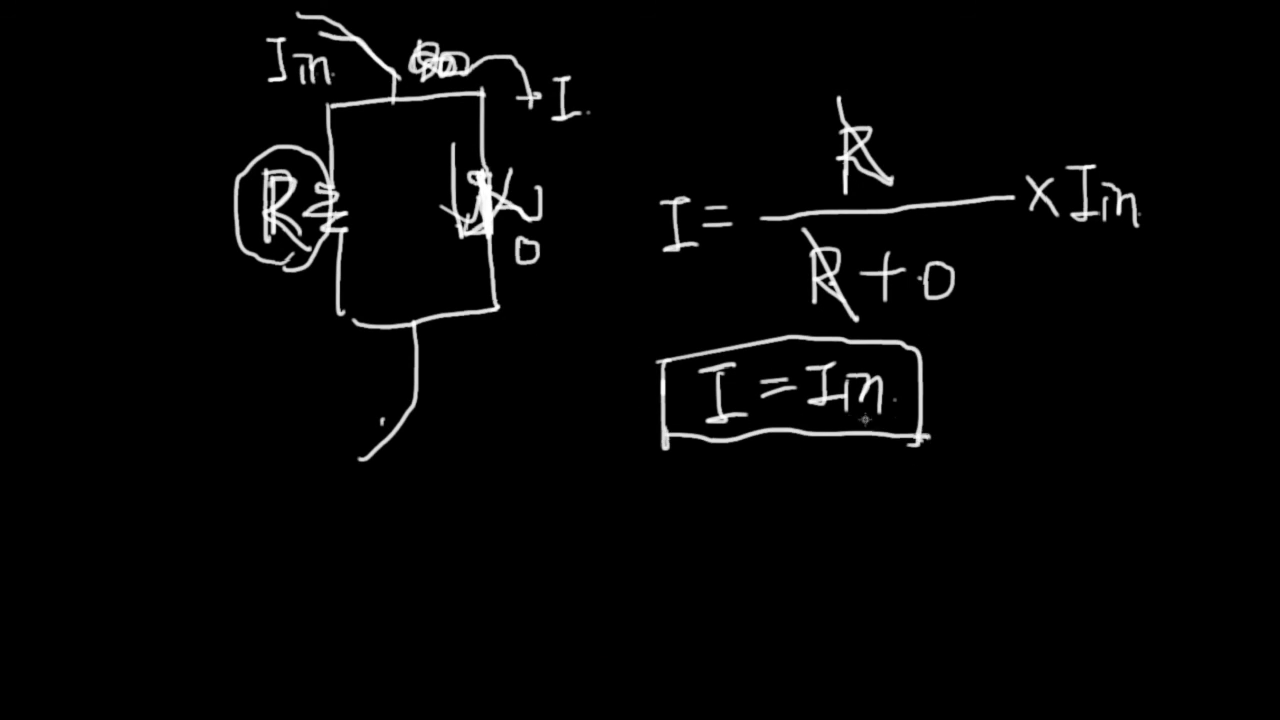 Iin
I
R
0
I = R / R + 0 × Iin
I = Iin